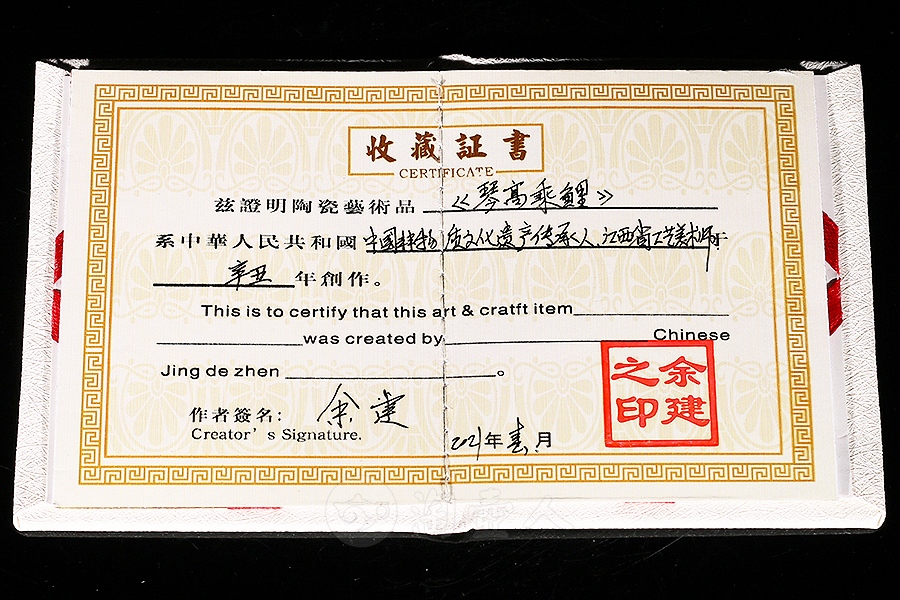 收藏証書
CERTIFICATE
兹證明陶瓷藝術品《琴高乘鲤》
系中華人民共和國中国非物质文化遗产传承人、江西省工艺美术师于
辛丑年創作。
This is to certify that this art & cratft item
was created by Chinese
Jing de zhen 。
作者簽名: 余建
Creator's Signature.
2021年春月
余建
之印